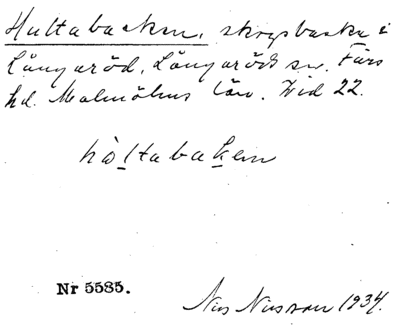 Hultabacken, skogsbacke i
Långaröd, Långaröds sn. Färs
hd. Malmöhus län. Zid 22.
hòltabaken
Nr 5585.
Nils Nilsson 1934.